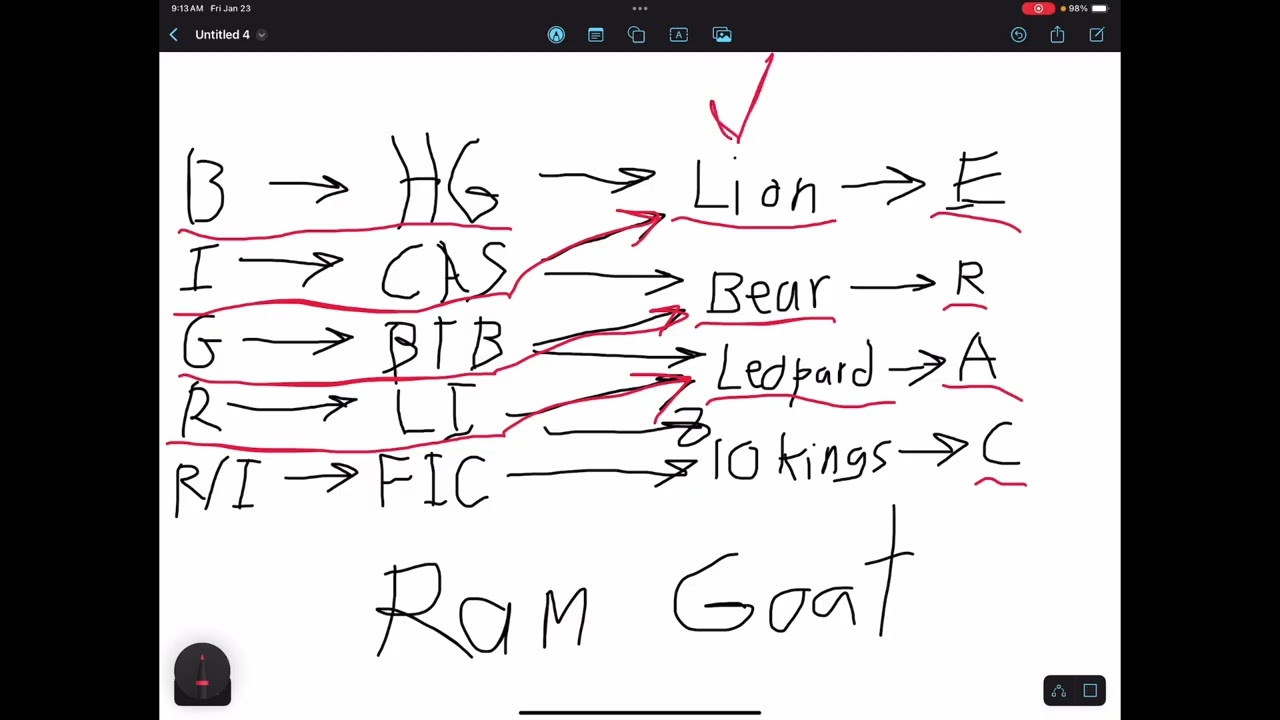 9:13 AM Fri Jan 23
98%
Untitled 4
B → HG → Lion → E
I → CAS → Bear → R
G → BTB → Leopard → A
R → LI →
R/I → FIC → 10 kings → C
Ram Goat